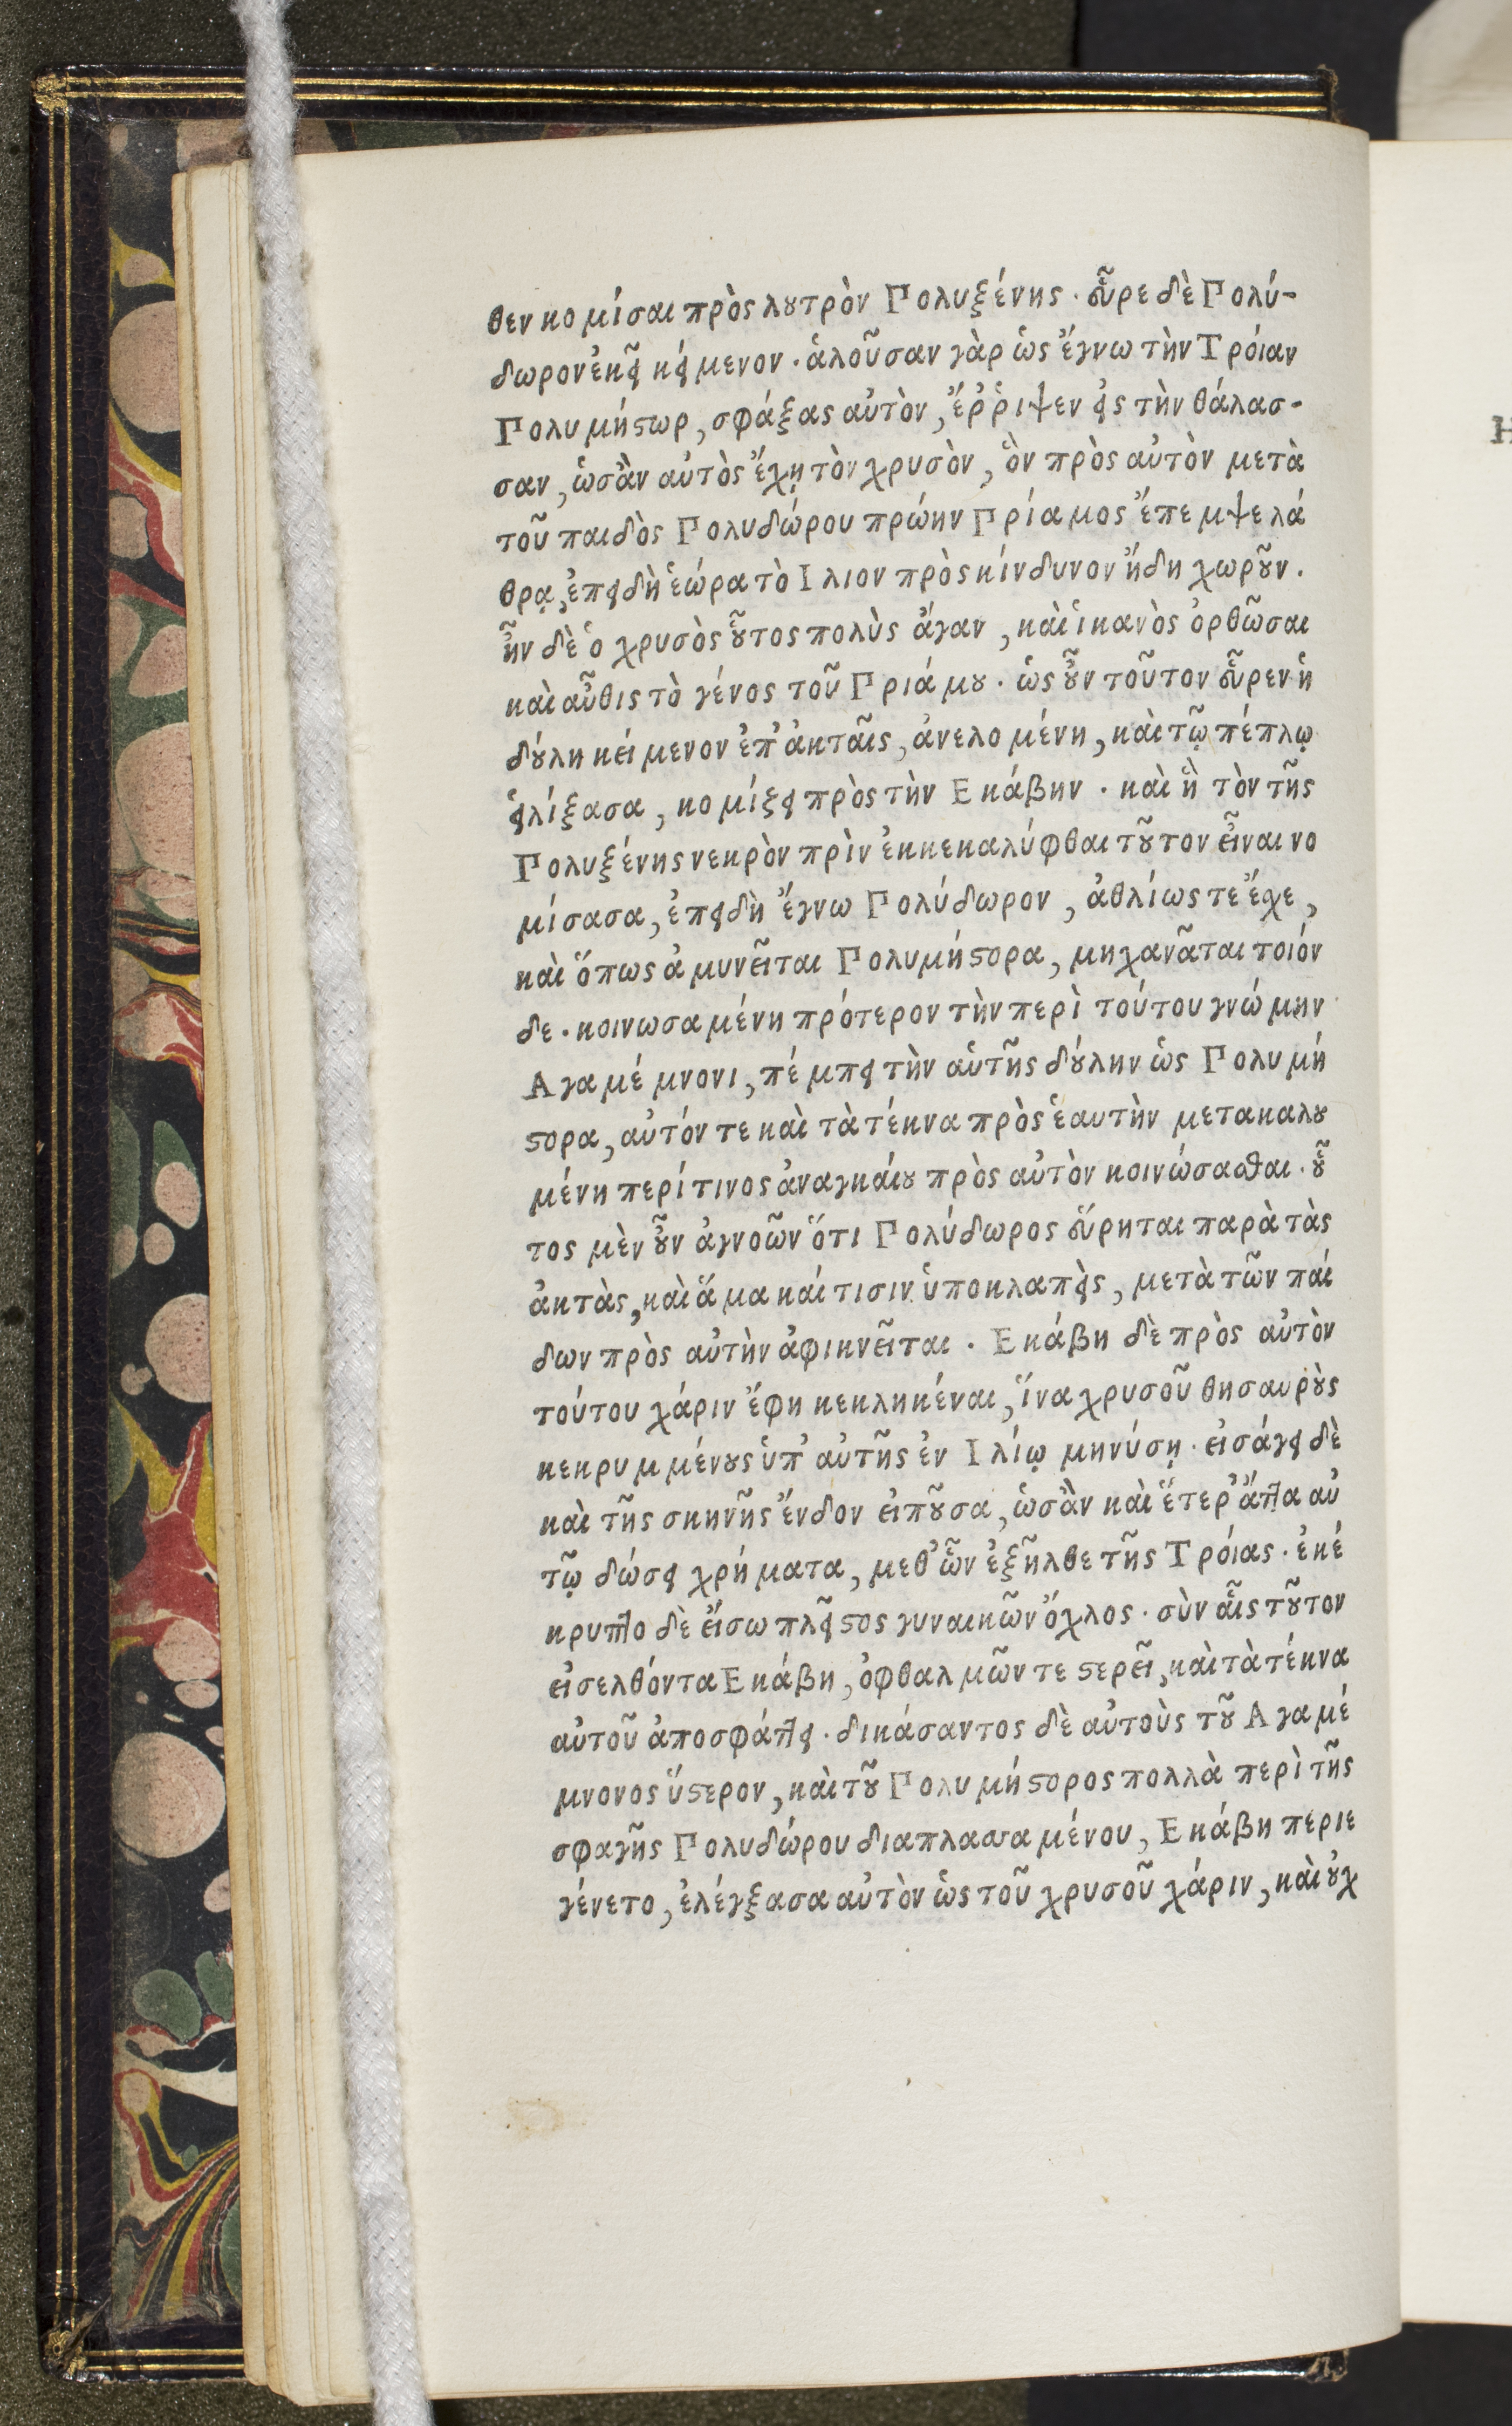 θεν κομίσαι πρὸς λουτρὸν Πολυξένης. εὗρε δὲ Πολύ-
δωρον ἐκεῖ κείμενον. ἁλοῦσαν γὰρ ὡς ἔγνω τὴν Τρόιαν
Πολυμήστωρ, σφάξας αὐτὸν, ἔῤῥιψεν εἰς τὴν θάλασ-
σαν, ὡσἂν αὐτὸς ἔχῃ τὸν χρυσὸν, ὃν πρὸς αὐτὸν μετὰ
τοῦ παιδὸς Πολυδώρου πρώην Πρίαμος ἔπεμψε λά
θρᾳ, ἐπειδὴ ἑώρα τὸ Ιλιον πρὸς κίνδυνον ἤδη χωροῦν.
ἦν δὲ ὁ χρυσὸς οὗτος πολὺς ἄγαν, καὶ ἱκανὸς ὀρθῶσαι
καὶ αὖθις τὸ γένος τοῦ Πριάμου. ὡς οὖν τοῦτον εὗρεν ἡ
δούλη κείμενον ἐπ' ἀκταῖς, ἀνελομένη, καὶ τῷ πέπλῳ
εἱλίξασα, κομίζει πρὸς τὴν Εκάβην. καὶ ἣ τὸν τῆς
Πολυξένης νεκρὸν πρὶν ἐκκεκαλύφθαι τοῦτον εἶναι νο
μίσασα, ἐπειδὴ ἔγνω Πολύδωρον, ἀθλίως τε ἔχε,
καὶ ὅπως ἀμυνεῖται Πολυμήστορα, μηχανᾶται τοιόν
δε. κοινωσαμένη πρότερον τὴν περὶ τούτου γνώμην
Αγαμέμνονι, πέμπει τὴν αὑτῆς δούλην ὡς Πολυμή
στορα, αὐτόν τε καὶ τὰ τέκνα πρὸς ἑαυτὴν μετακαλου
μένη περί τινος ἀναγκάιου πρὸς αὐτὸν κοινώσασθαι. οὗ
τος μὲν οὖν ἀγνοῶν ὅτι Πολύδωρος εὕρηται παρὰ τὰς
ἀκτὰς, καὶ ἅμα κάι τισιν ὑποκλαπεὶς, μετὰ τῶν πάι
δων πρὸς αὐτὴν ἀφικνεῖται. Εκάβη δὲ πρὸς αὐτὸν
τούτου χάριν ἔφη κεκληκέναι, ἵνα χρυσοῦ θησαυροὺς
κεκρυμμένους ὑπ' αὐτῆς ἐν Ιλίῳ μηνύσῃ. εἰσάγει δὲ
καὶ τῆς σκηνῆς ἔνδον εἰποῦσα, ὡσἂν καὶ ἕτερ' ἄττα αὐ
τῷ δώσει χρήματα, μεθ' ὧν ἐξῆλθε τῆς Τρόιας. ἐκέ
κρυπτο δὲ εἴσω πλεῖστος γυναικῶν ὄχλος. σὺν αἷς τοῦτον
εἰσελθόντα Εκάβη, ὀφθαλμῶν τε στερεῖ, καὶ τὰ τέκνα
αὐτοῦ ἀποσφάττει. δικάσαντος δὲ αὐτοὺς τοῦ Αγαμέ
μνονος ὕστερον, καὶ τοῦ Πολυμήστορος πολλὰ περὶ τῆς
σφαγῆς Πολυδώρου διαπλασαμένου, Εκάβη περιε
γένετο, ἐλέγξασα αὐτὸν ὡς τοῦ χρυσοῦ χάριν, καὶ οὐχ